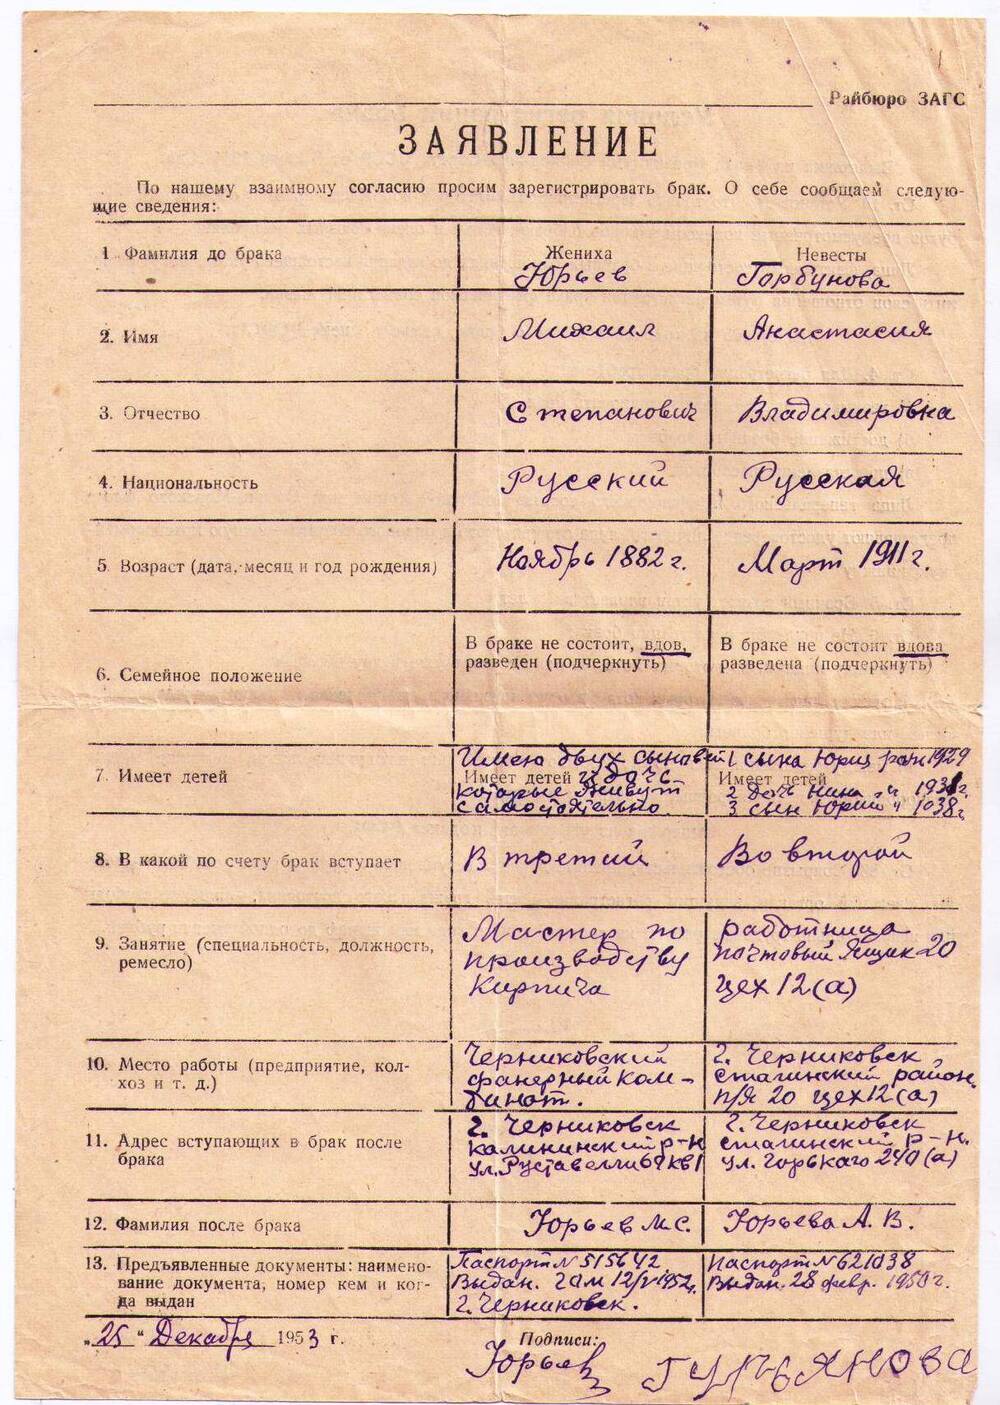 Райбюро ЗАГС
ЗАЯВЛЕНИЕ
По нашему взаимному согласию просим зарегистрировать брак. О себе сообщаем следую-
щие сведения:
1 Фамилия до брака
Жениха
Юрьев
Невесты
Горбунова
2. Имя
Михаил
Анастасия
3. Отчество
Степанович
Владимировна
4. Национальность
Русский
Русская
5. Возраст (дата, месяц и год рождения)
Ноябрь 1882 г.
Март 1911 г.
6. Семейное положение
В браке не состоит, вдов,
разведен (подчеркнуть)
В браке не состоит вдова
разведена (подчеркнуть)
7. Имеет детей
Имею двух сыновей
Имеет детей и дочь
которые живут
самостоятельно.
1 сына Юрия 1929
Имеет детей
2 дочь Нина 1931г.
3 сын Юрий " 1038г
8. В какой по счету брак вступает
В третий
Во второй
9. Занятие (специальность, должность,
ремесло)
Мастер по
производству
Кирпича
работница
почтовый Ящик 20
цех 12(а)
10. Место работы (предприятие, кол-
хоз и т. д.)
Черниковский
фанерный ком-
бинат.
г. Черниковск
сталинский район.
п/я 20 цех 12(а)
11. Адрес вступающих в брак после
брака
г. Черниковск
калининский р-н
ул. Руставелли 68 кв 1
г. Черниковск
сталинский р-н.
ул. Горькаго 240(а)
12. Фамилия после брака
Юрьев М.С.
Юрьева А. В.
13. Предъявленные документы: наимено-
вание документа, номер кем и ког-
да выдан
Паспорт № 515642
Выдан. 2 а м 12/V 1952г.
г. Черниковск.
Паспорт № 621038
Выдан. 28 февр. 1950 г.
„25“ Декабря 1953 г.
Подписи:
Юрьев